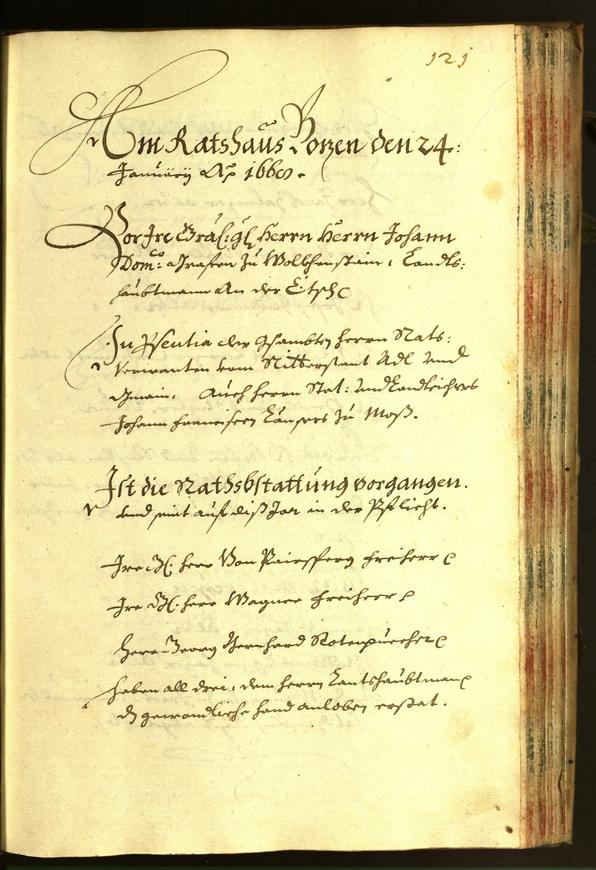 121
Am Ratshaus Bozen den 24:
Januarij Ao 1668.
Vor Ire Gräf: gl. Herrn Herrn Johann
Domco: Grafen zu Wolckhenstain, Landts:
haubtmann An der Etsch
In Psentia der Gsambten herrn Rats:
verwanten vom Ritterstant Adl Und
Gmain, Auch herrn Stat: Und Landrichters
Johann Francisen zu Moß.
Ist die Rathsbstattung vorgangen.
und mit auf diß Jar in der Pflicht.
Ire G. herr Von freiherr
Ire G. herr Wagner freiherr
Herr Georg Bernhard Rotenpuecher
haben all drei, dem herrn Lantshaubtman
die gewondliche hand anloben erstat.